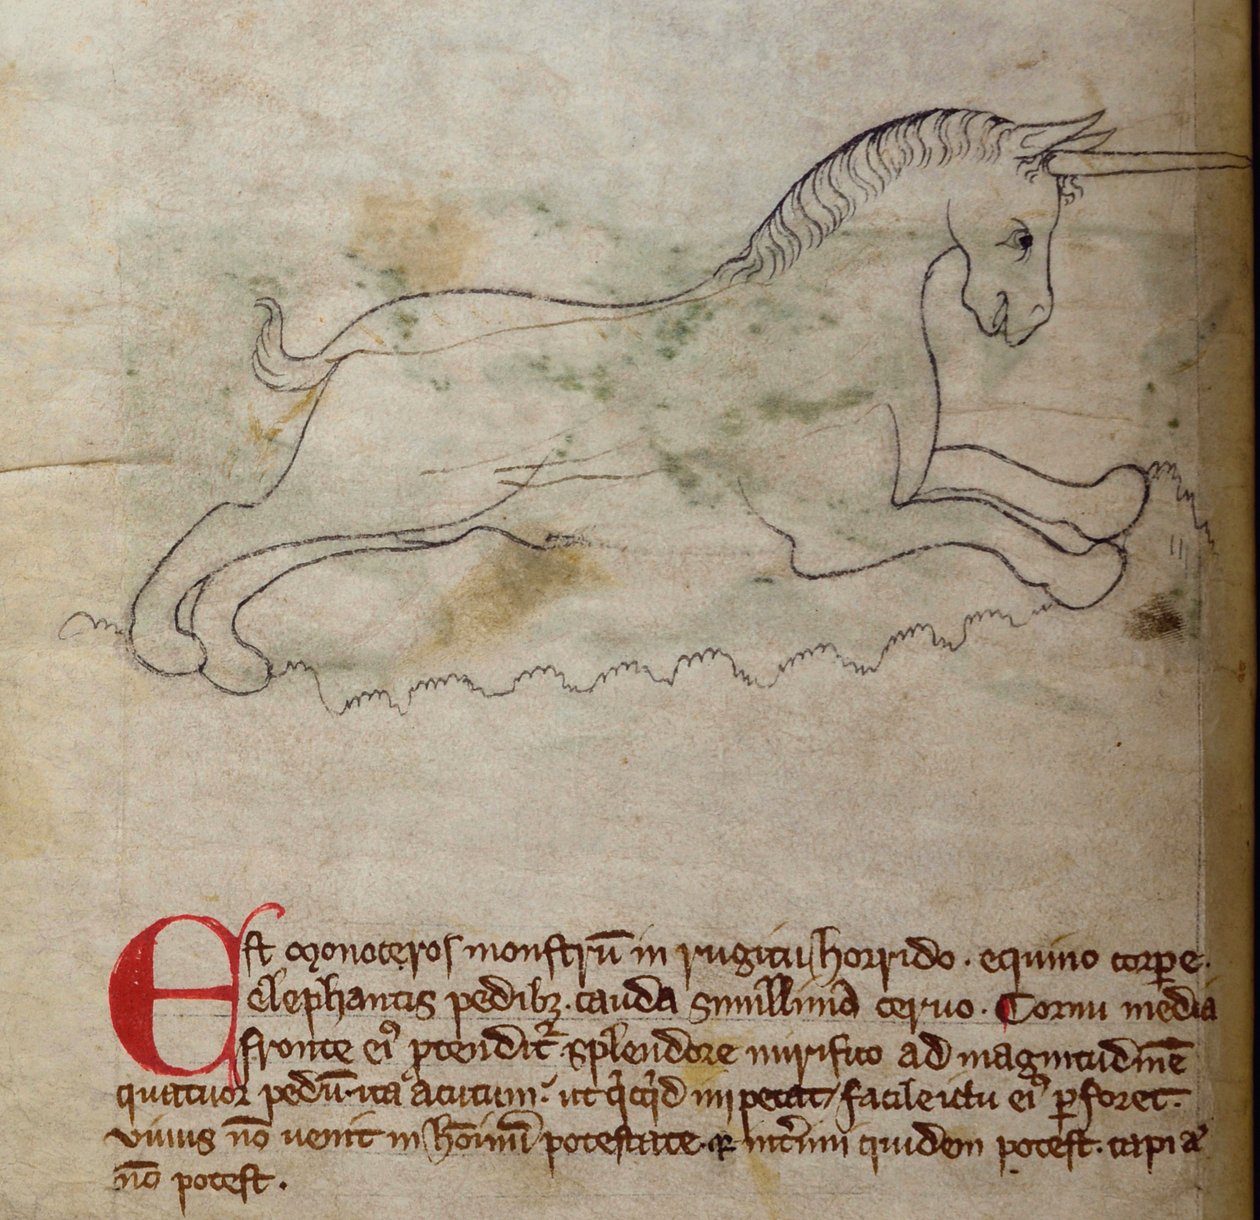 Est monoceros monstrū in rugitu horrido. equino corpe.
elephantis pedibꝫ. cauda simillima ceruo. Cornu media
fronte eiꝰ ꝓtendit᷑ splendore mirifico ad magnitudinē
quatuor pedū. ita acutum. ut qͥcqͥd impetat / facile ictu eiꝰ ꝑforet.
viuus nō uenit in hōinū potestate. ⁊ int̄imi quidem potest. capi
nō potest.